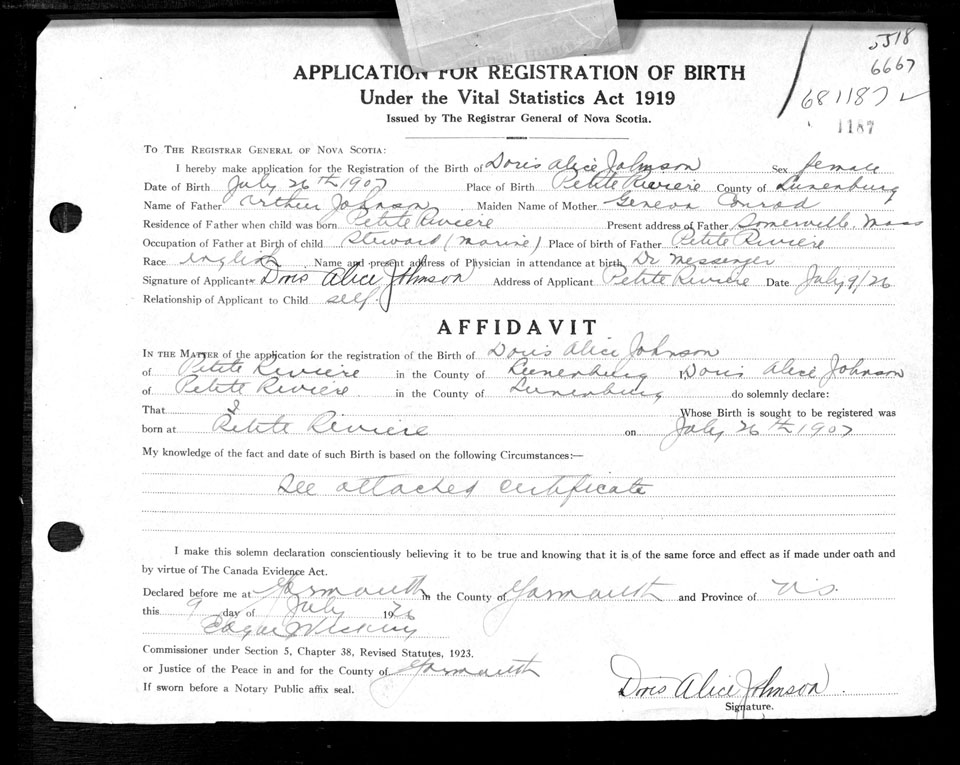 5518
6667
681187 ✓
1187
APPLICATION FOR REGISTRATION OF BIRTH
Under the Vital Statistics Act 1919
Issued by The Registrar General of Nova Scotia.
TO THE REGISTRAR GENERAL OF NOVA SCOTIA:
I hereby make application for the Registration of the Birth of Doris Alice Johnson Sex female
Date of Birth July 26th 1907 Place of Birth Petite Riviere County of Lunenburg
Name of Father Arthur Johnson Maiden Name of Mother Geneva Conrad
Residence of Father when child was born Petite Riviere Present address of Father Somerville, Mass
Occupation of Father at Birth of child Steward (marine) Place of birth of Father Petite Riviere
Race English Name and present address of Physician in attendance at birth Dr Messenger
Signature of Applicant Doris Alice Johnson Address of Applicant Petite Riviere Date July 9/26
Relationship of Applicant to Child self.
AFFIDAVIT
IN THE MATTER of the application for the registration of the Birth of Doris Alice Johnson
of Petite Riviere in the County of Lunenburg I, Doris Alice Johnson
of Petite Riviere in the County of Lunenburg do solemnly declare:
That I Whose Birth is sought to be registered was
born at Petite Riviere on July 26th 1907
My knowledge of the fact and date of such Birth is based on the following Circumstances:—
See attached certificate
I make this solemn declaration conscientiously believing it to be true and knowing that it is of the same force and effect as if made under oath and
by virtue of The Canada Evidence Act.
Declared before me at Yarmouth in the County of Yarmouth and Province of N.S.
this 9 day of July 1926
Edgar
Commissioner under Section 5, Chapter 38, Revised Statutes, 1923.
or Justice of the Peace in and for the County of Yarmouth
If sworn before a Notary Public affix seal.
Doris Alice Johnson
Signature.